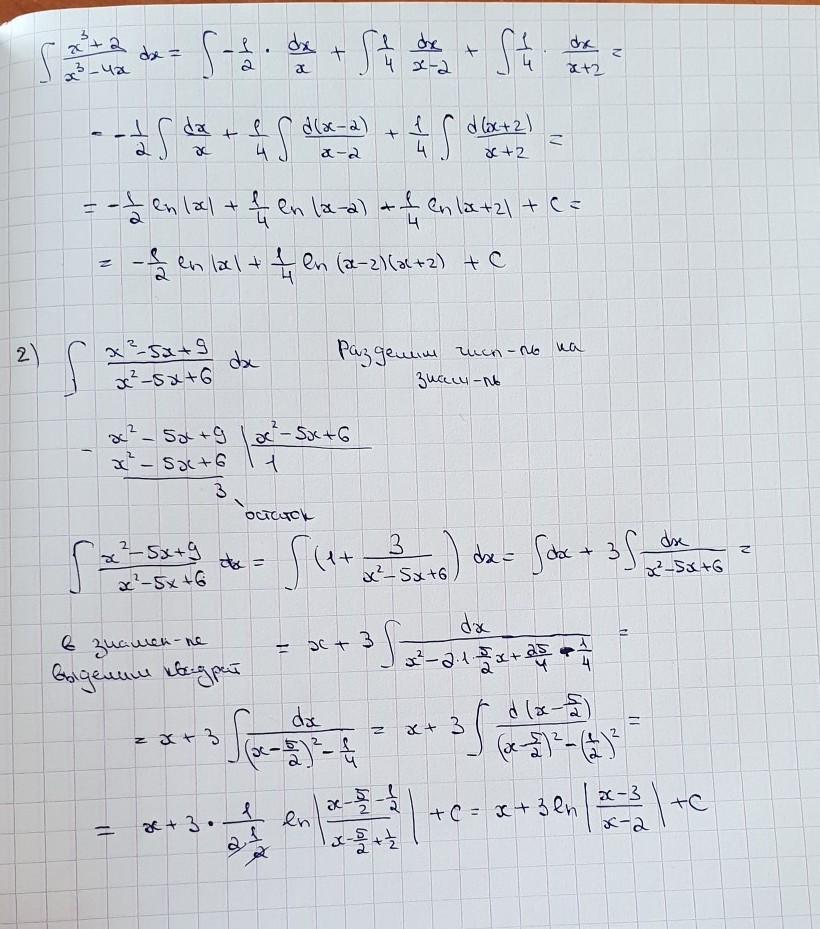 ∫ (x³+2)/(x³-4x) dx = ∫ -1/2 · dx/x + ∫ 1/4 dx/(x-2) + ∫ 1/4 · dx/(x+2) =
= -1/2 ∫ dx/x + 1/4 ∫ d(x-2)/(x-2) + 1/4 ∫ d(x+2)/(x+2) =
= -1/2 ln|x| + 1/4 ln|x-2| + 1/4 ln|x+2| + C =
= -1/2 ln|x| + 1/4 ln (x-2)(x+2) + C
2) ∫ (x²-5x+9)/(x²-5x+6) dx Разделим числ-ль на
знам-ль
- x² - 5x + 9 | x²-5x+6
x² - 5x + 6 | 1
3
остаток
∫ (x²-5x+9)/(x²-5x+6) dx = ∫ (1 + 3/(x²-5x+6)) dx = ∫ dx + 3 ∫ dx/(x²-5x+6) =
в знамен-ле
выделим квадрат
= x + 3 ∫ dx/(x² - 2·1·5/2 x + 25/4 - 1/4) =
= x + 3 ∫ dx/((x-5/2)² - 1/4) = x + 3 ∫ d(x-5/2)/((x-5/2)² - (1/2)²) =
= x + 3 · 1/(2·1/2) ln|(x-5/2-1/2)/(x-5/2+1/2)| + C = x + 3 ln|(x-3)/(x-2)| + C